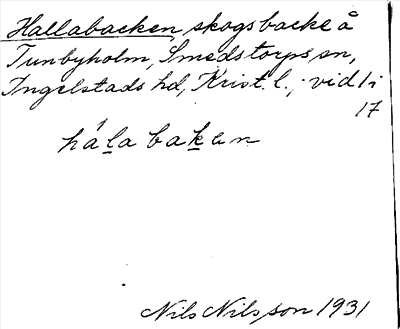 Hallabacken, skogsbacke å
Tunbyholm, Smedstorps sn,
Ingelstads hd, Krist. l.; vid li
17
hála bakan
Nils Nilsson 1931